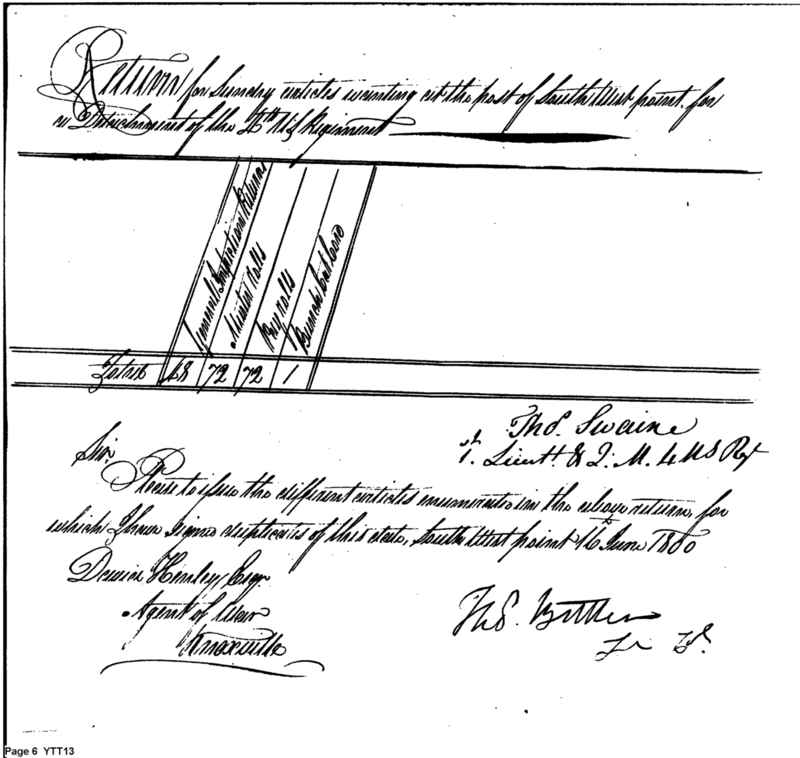 Return for Sundry articles wanting at the post of South West point for
a Detachment of the 4th US Regiment
General Inspection Returns
Muster Rolls
Pay rolls
Total 72 72 1
Thos. Swaine
1st. Lieutt. & Q. M. 4 US Regt
Sir.
Please to issue the different articles enumerated in the above return for
which I have signed duplicates of this date, South West point 16 June 1800
David Henley, Esqr.
Agent of War
Knoxville
Thos. Butler
Page 6 YTT13